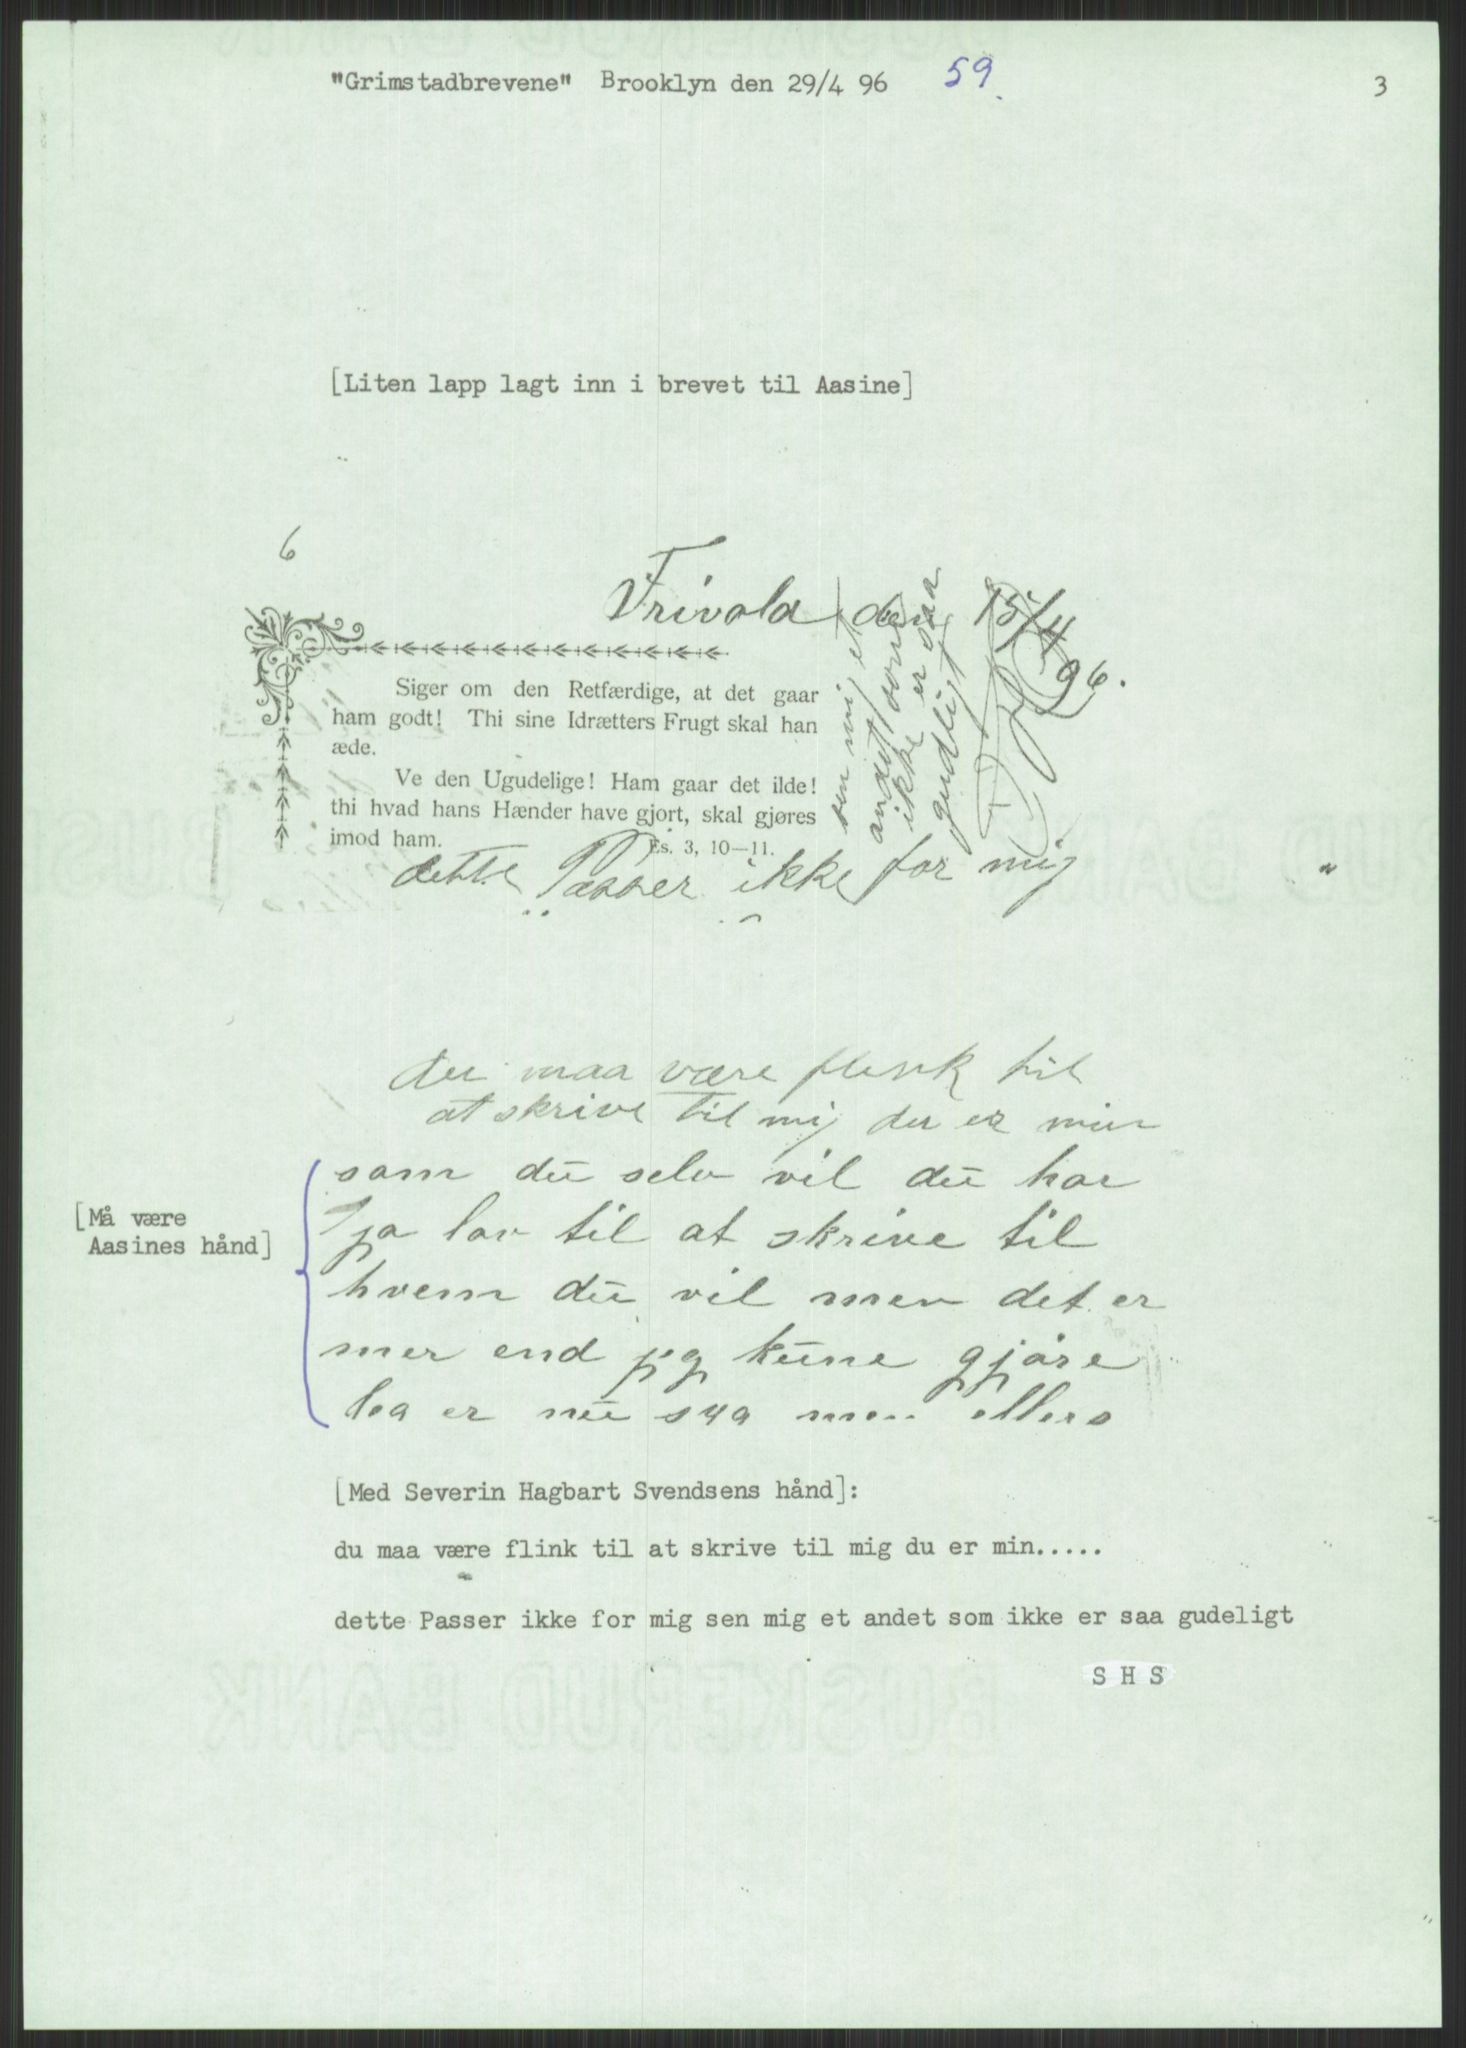 "Grimstadbrevene" Brooklyn den 29/4 96 59. 3
[Liten lapp lagt inn i brevet til Aasine]
6
Frivold den 15/4 96.
Siger om den Retfærdige, at det gaar
ham godt! Thi sine Idrætters Frugt skal han
æde.
Ve den Ugudelige! Ham gaar det ilde!
thi hvad hans Hænder have gjort, skal gjøres
imod ham.
Es. 3, 10—11.
dette Passer ikke for mig
sen mig et
andet som
ikke er saa
gudeligt
du maa være flink til
at skrive til mig du er min
som du selv vil du har
ja lov til at skrive til
hvem du vil men det er
mer end jeg kune gjøre
er nu saa men ellers
[Må være
Aasines hånd]
[Med Severin Hagbart Svendsens hånd]:
du maa være flink til at skrive til mig du er min.....
dette Passer ikke for mig sen mig et andet som ikke er saa gudeligt
S H S
BUSKERUD BANK